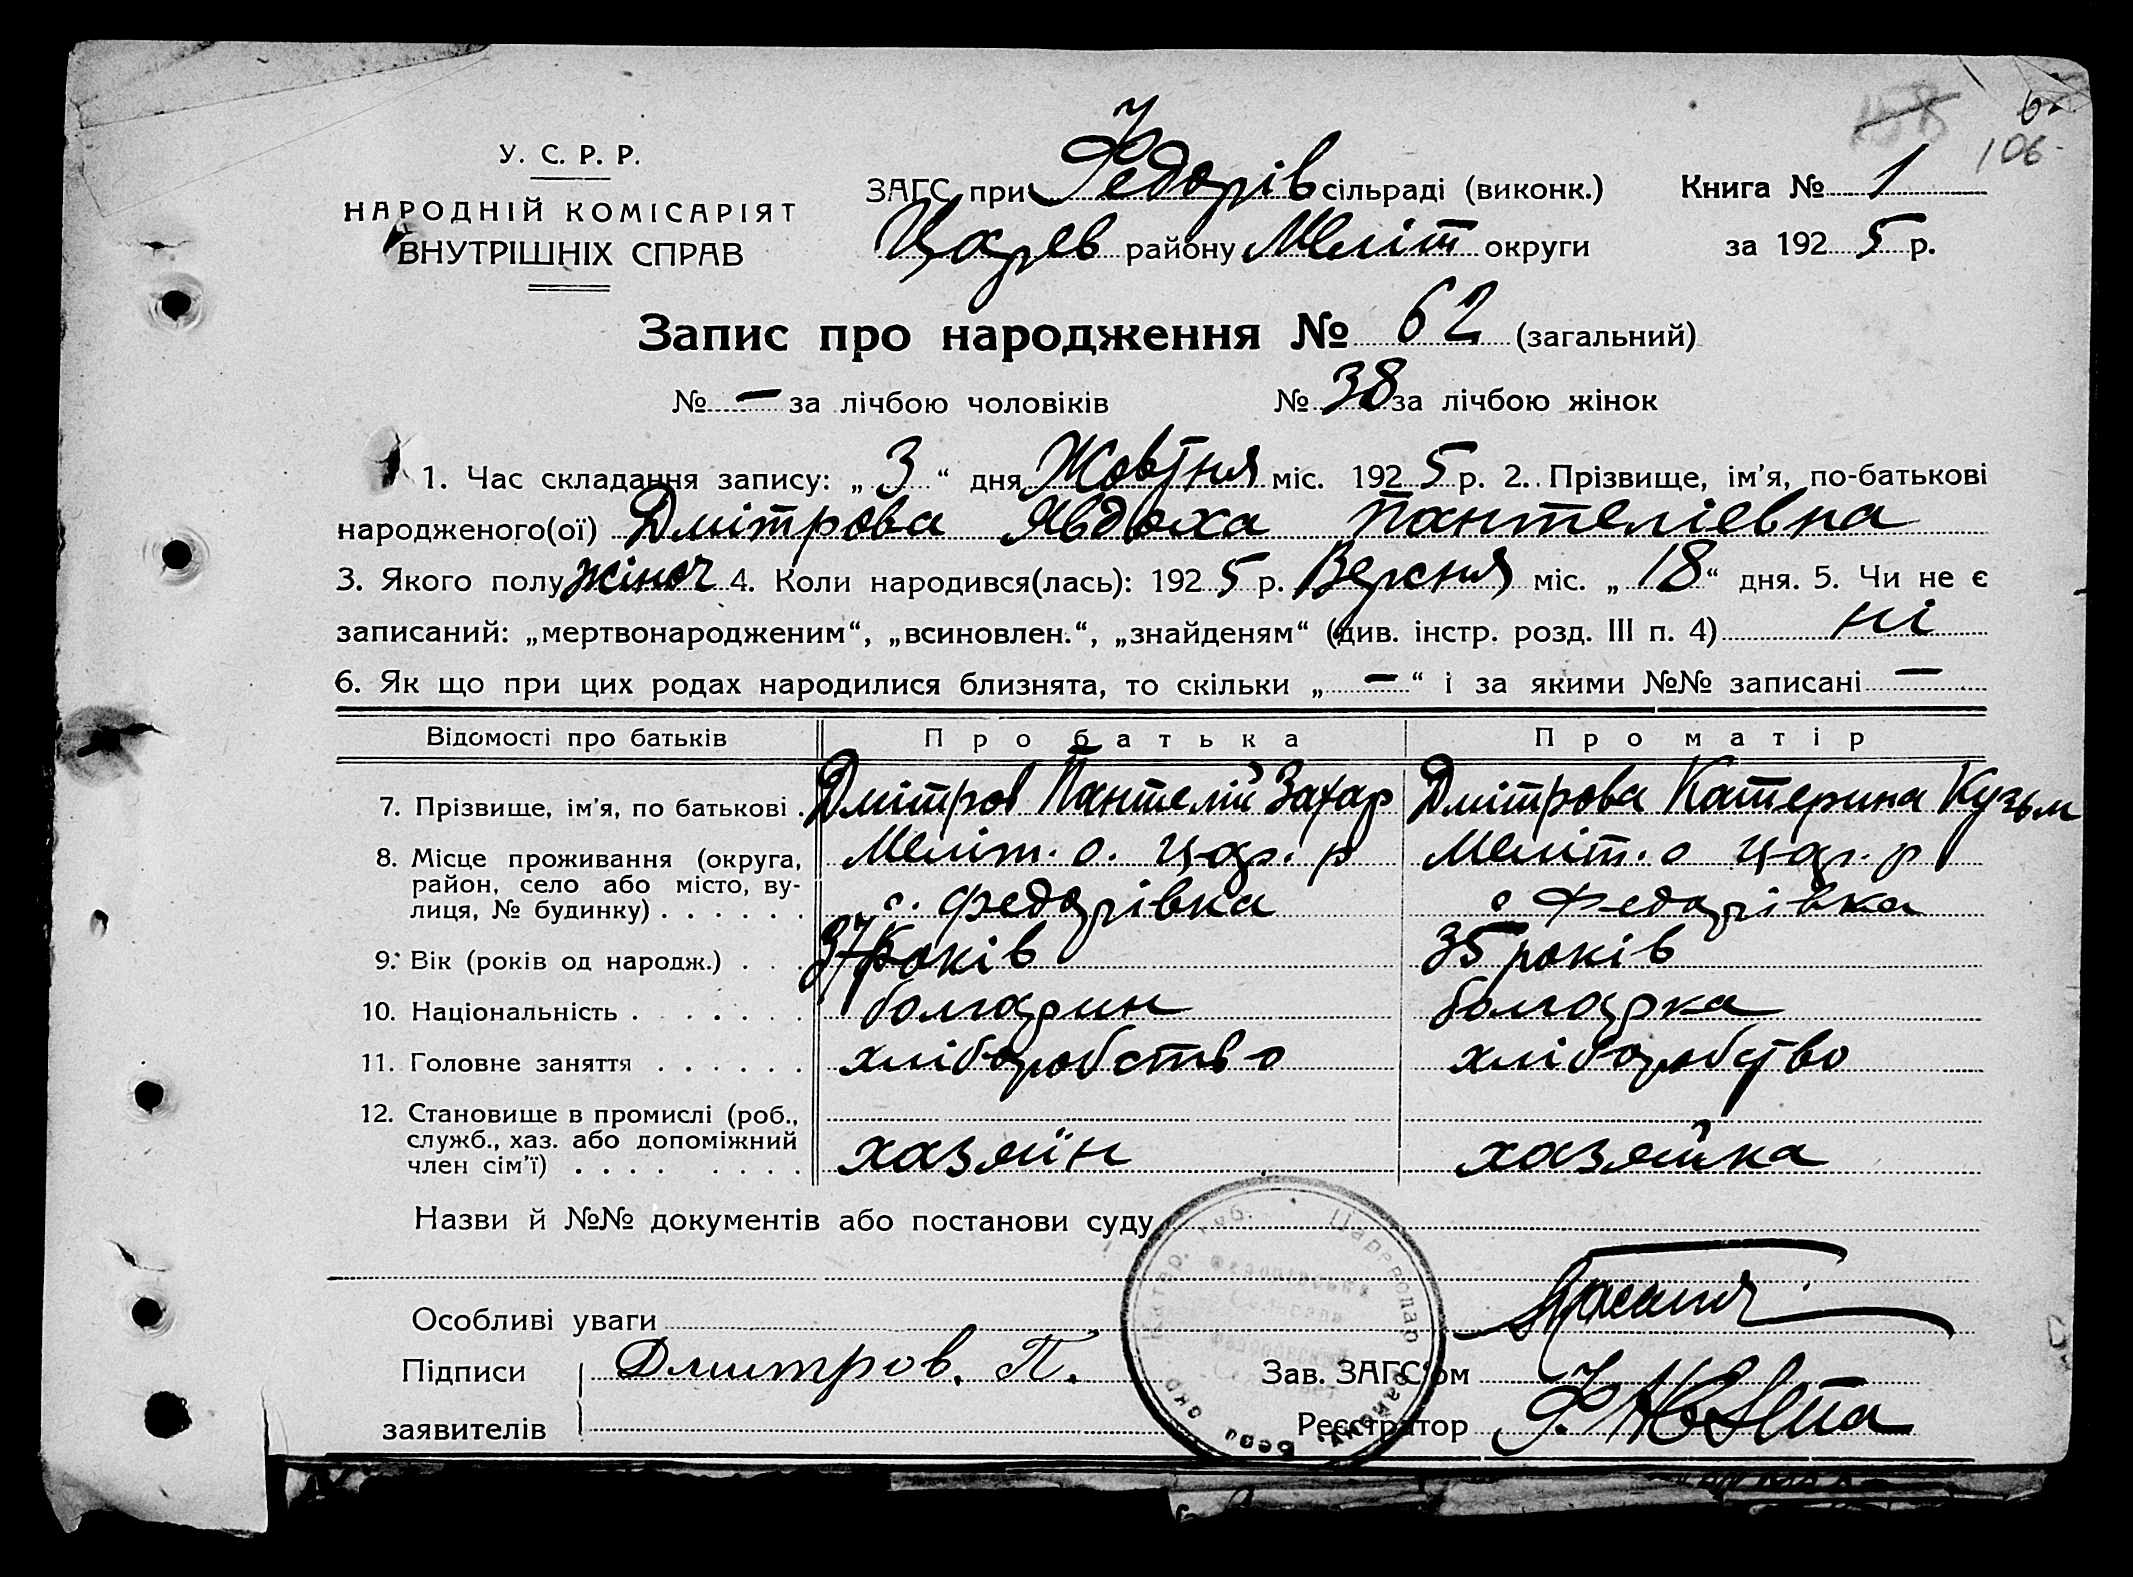 158
106
У. С. Р. Р.
НАРОДНІЙ КОМІСАРІЯТ
ВНУТРІШНІХ СПРАВ
ЗАГС при Федорів сільраді (виконк.)
Царев району Меліт округи
Книга № 1
за 1925 р.
Запис про народження № 62 (загальний)
№ — за лічбою чоловіків № 38 за лічбою жінок
1. Час складання запису: „3“ дня Жовтня міс. 1925 р. 2. Прізвище, ім’я, по-батькові
народженого(ої) Дмітрова Явдоха Пантеліевна
3. Якого полу жіноч 4. Коли народився(лась): 1925 р. Версня міс. „18“ дня. 5. Чи не є
записаний: „мертвонародженим“, „всиновлен.“, „знайденям“ (див. інстр. розд. III п. 4) ні
6. Як що при цих родах народилися близнята, то скільки „—“ і за якими №№ записані —
Відомості про батьків Про батька Про матір
7. Прізвище, ім’я, по батькові . Дмітров Пантелій Захар Дмітрова Катерина Кузьм
8. Місце проживання (округа, район, село або місто, вулиця, № будинку) . . . . . .
Меліт. о. Цар. р
с. Федорівка
Меліт. о Цар. р
с Федорівка
9. Вік (років од народж.) . . . 37 років 35 років
10. Національність . . . . . . . болгарин болгарка
11. Головне заняття . . . . . . хліборобство хліборобство
12. Становище в промислі (роб.,
служб., хаз. або допоміжний
член сім’ї) . . . . . . . . хазяїн хазяйка
Назви й №№ документів або постанови суду
Особливі уваги
Підписи Дмитров. П.
заявителів
Зав. ЗАГС’ом
Реєстратор